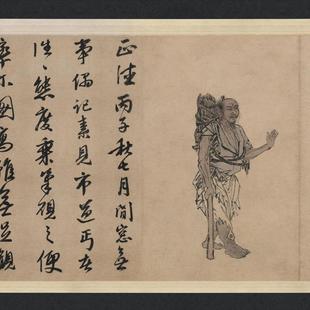 正德丙子秋七月閒窗無
事偶記素見市道丐者
往往態度乘筆硯之便
率爾圖寫雖無足觀